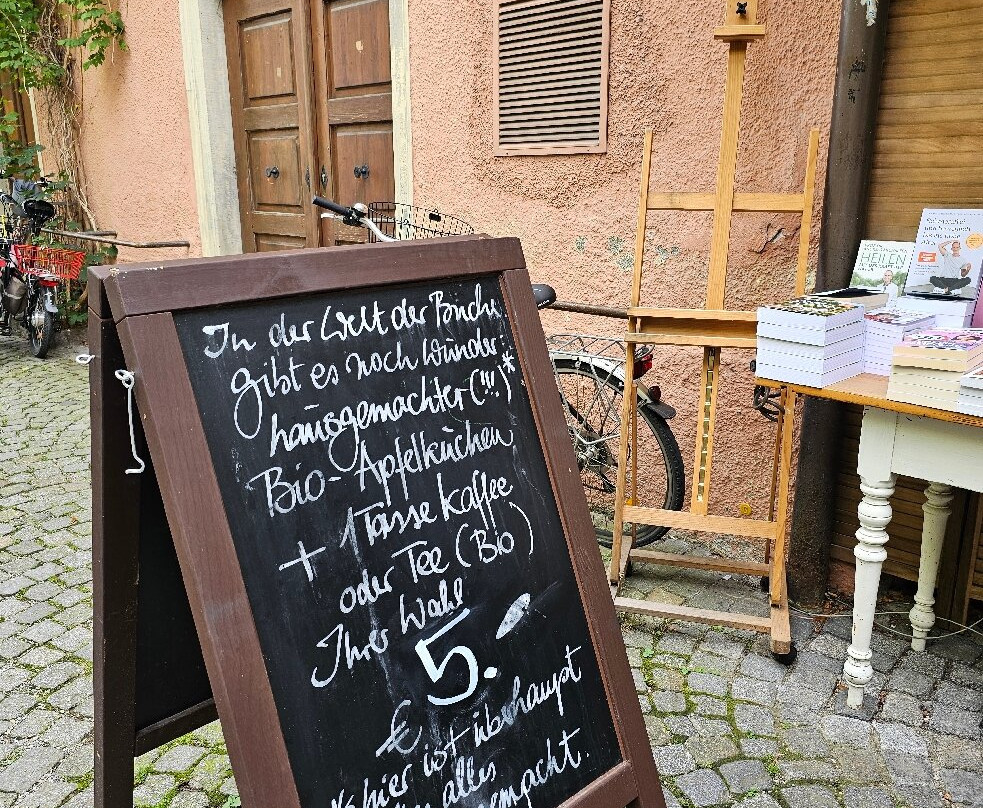 In der Welt der Büche
gibt es noch Wunder:
hausgemachter (!!!)*
Bio-Apfelkuchen
+ 1 Tasse Kaffee
oder Tee (Bio)
Ihrer Wahl
5.-
€
*hier ist überhaupt
alles
gemacht.
HEILEN